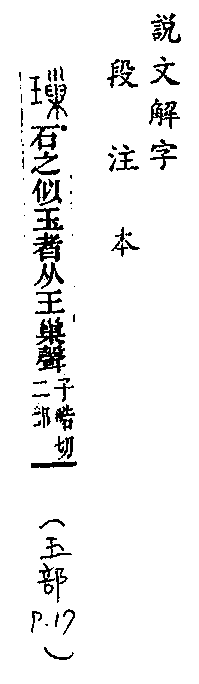 説文解字
段注本
璅石之似玉者从王巢聲子晧切二部
(玉部P.17)